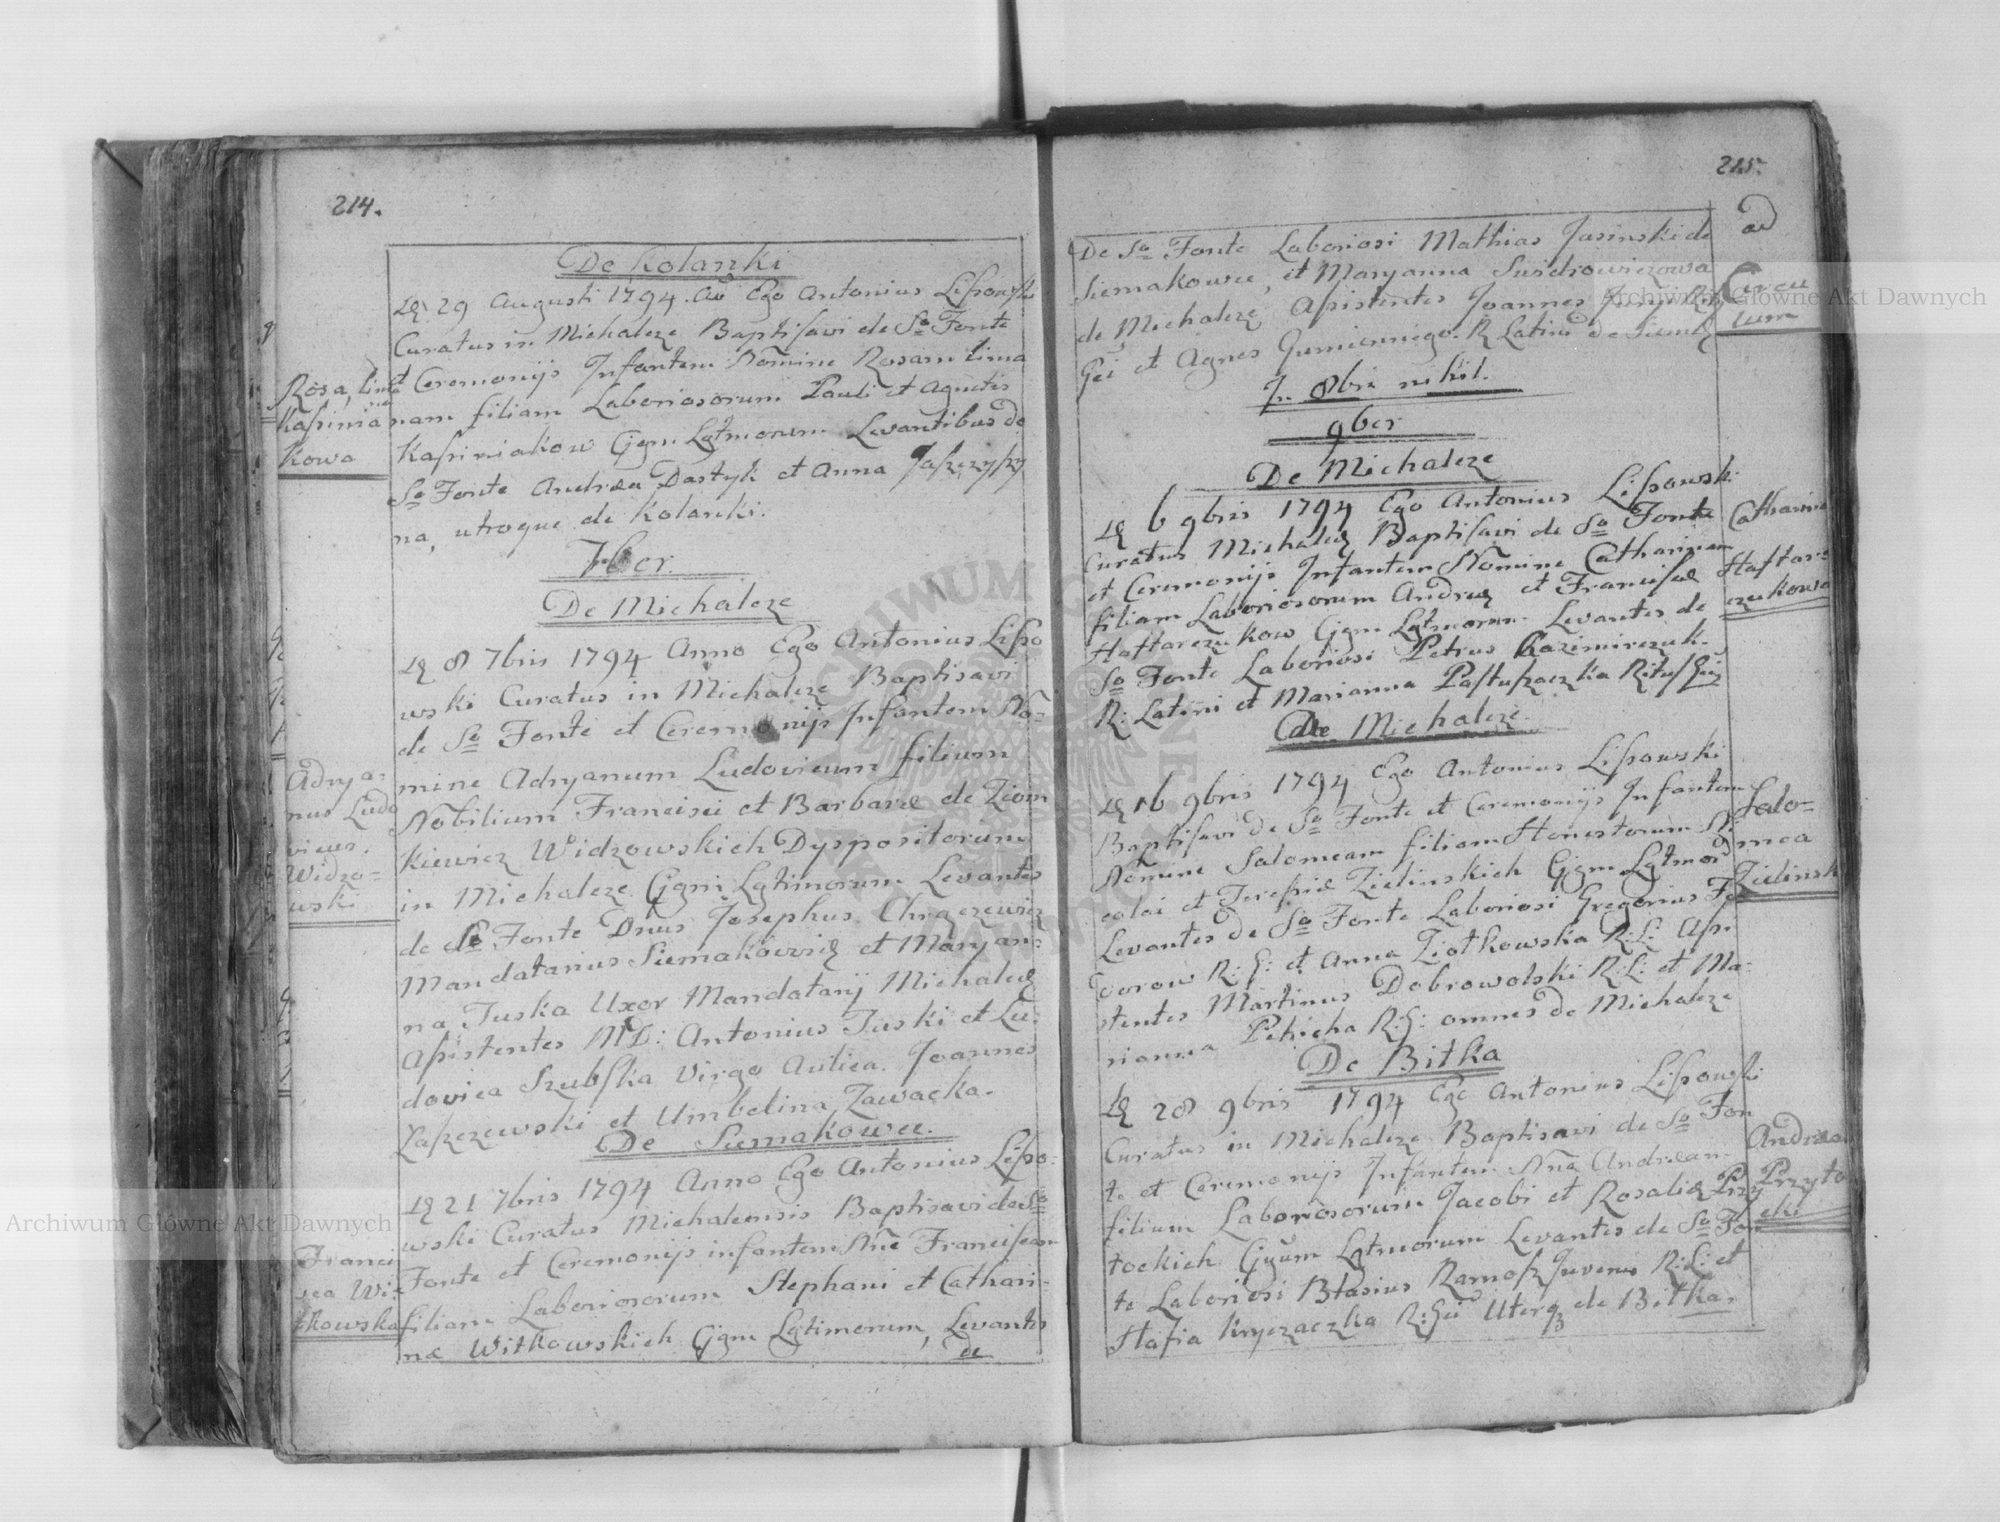 214.
De Kolanki
29 Augusti 1794. Ao Ego Antonius Lissowski
Curatus in Michalcze Baptisavi de So Fonte
et Ceremonijs Infantem Nomine Rosam Lima
nam filiam Laboriosorum Pauli et Agnetis
Kasiniakow Cjgm Lgtmorum Levantibus de
So Fonte Andrea Dastyk et Anna
na, utroque de Kolanki.
Rosa, Lima
na
Kasinia
kowa
7ber.
De Michalcze
8 7bris 1794 Anno Ego Antonius Lisso
wski Curatus in Michalcze Baptisavi
de So Fonte et Ceremonijs Infantem No-
mine Adryanum Ludovicum filium
Nobilium Francisci et Barbaræ de Ziom
kiewicz Widzowskich Dyspositorum
in Michalcze Cjgm Lgtimorum Levantes
de So Fonte Dnus Josephus
Mandatarius Siemakowiæ et Maryan-
na Tuska Uxor Mandatarij Michalcæ
Assistentes MD: Antonius Tuski et Lu-
dovica Szubska Virgo Aulica. Joannes
Zaszczewski et Umbelina Zawacka.
Adrya-
nus Ludo
vicus.
Widzo-
wski
De Siemakowce.
21 7bris 1794 Anno Ego Antonius Lisso-
wski Curatus Michalcensis Baptisavi de So
Fonte et Ceremonijs infantem Nne Franciscam
filiam Laboriosorum Stephani et Cathari-
næ Witkowskich Cjgm Lgtimorum, Levantes
de
Franci
sca Wi-
tkowska
215.
De So Fonte Laboriosi Mathias Jasinski de
Siemakowce, et Maryanna
de Michalcze Assistentes Joannes
Gei et Agnes R Latini de
ad
Circu
lum
In 8bri nihil.
9ber
De Michalcze
6 9bris 1794 Ego Antonius Lissowski
Curatus Michalcæ Baptisavi de So Fonte
et Ceremonijs Infantem Nomine Catharinam
filiam Laboriosorum Andreæ et Franciscæ
Haftarczukow Cjgm Lgtmorum Levantes de
So Fonte Laboriosi Petrus Kazimirczuk
R: Latini et Marianna Pastuszaczka Ritus Gei
Catharina
Haftar-
czukowa
De Michalcze.
16 9bris 1794 Ego Antonius Lissowski
Baptisavi de So Fonte et Ceremonijs Infantem
Nomine Salomeam filiam Honestorum Ni
colai et Teresiæ Zielinskich Cjgm Lgtmor
Levantes de So Fonte Laboriosi Gregorius Fe
dorow R: G: et Anna Ziotkowska R: L: Ass-
stentes Martinus Dobrowolski R: L: et Ma-
rianna Petricha R: G: omnes de Michalcze
Salo-
mea
Zielinsk
De Bitka
28 9bris 1794 Ego Antonius Lissowski
Curatus in Michalcze Baptisavi de So Fon
te et Ceremonijs Infantem Nne Andream
filium Laboriosorum Jacobi et Rosaliæ Przy
tockich Cjgum Lgtmorum Levantes de So Fon
te Laboriosi Btasius Ramosz Juvenis R: L: et
Hafia Kryczaczka R: Gei Uterq de Bitka.
Andreas
Przyto
cki
ARCHIWUM GŁÓWNE AKT DAWNYCH
Archiwum Główne Akt Dawnych
Archiwum Główne Akt Dawnych